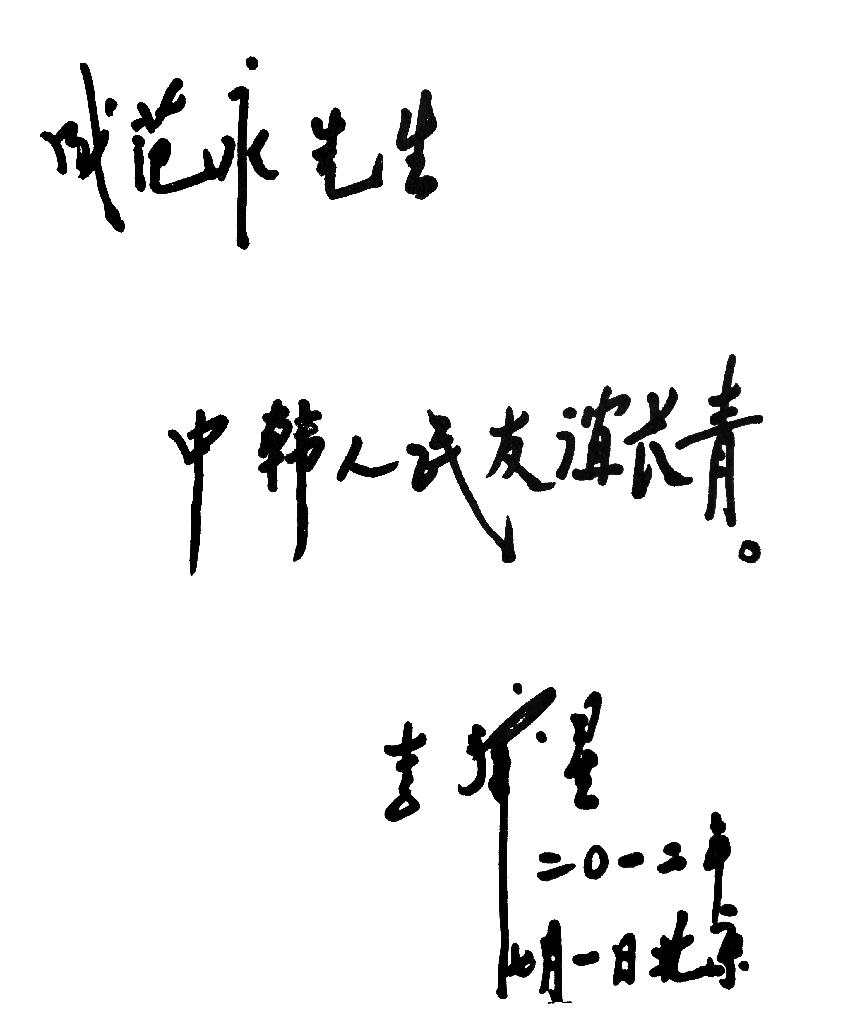 成范永先生
中韩人民友谊长青。
吉 星
二〇一二年
月一日北京